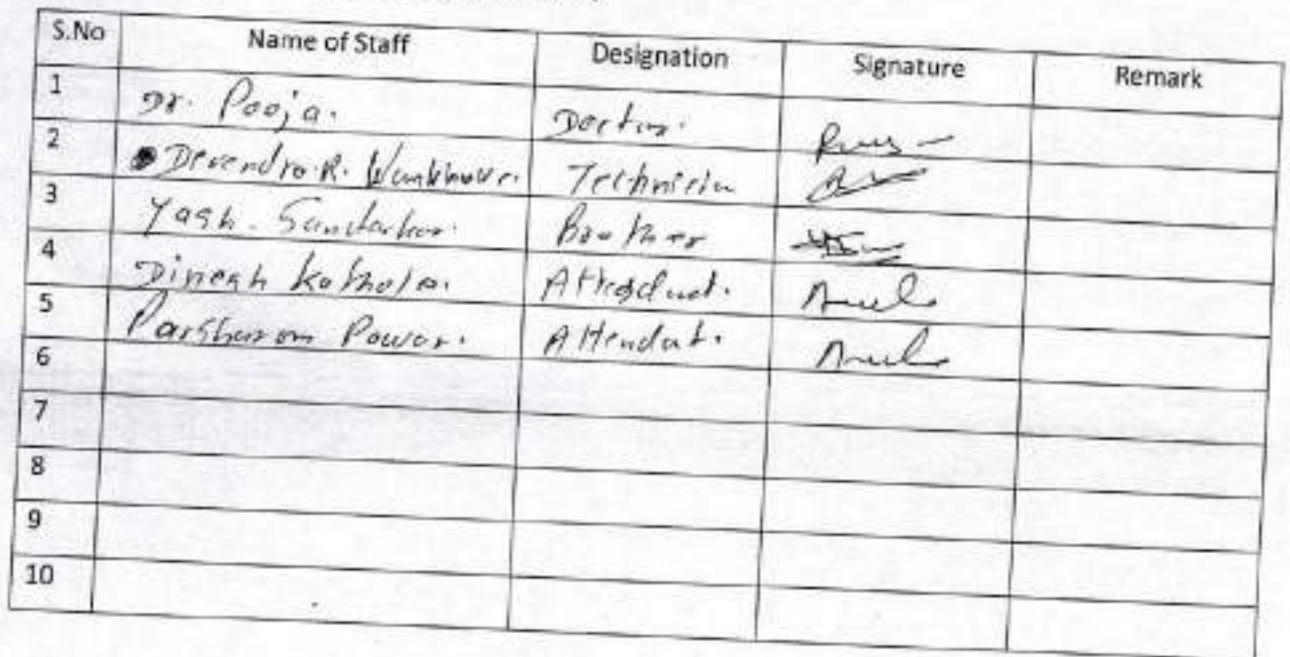 S.No Name of Staff Designation Signature Remark
1 Dr. Pooja. Doctor.
2 Devendra.R. Wankhove. Technicin
3 Yash. Brother
4 Dinesh Kathole. Attendnt.
5 Parshuram Pawar. Attendat.
6
7
8
9
10